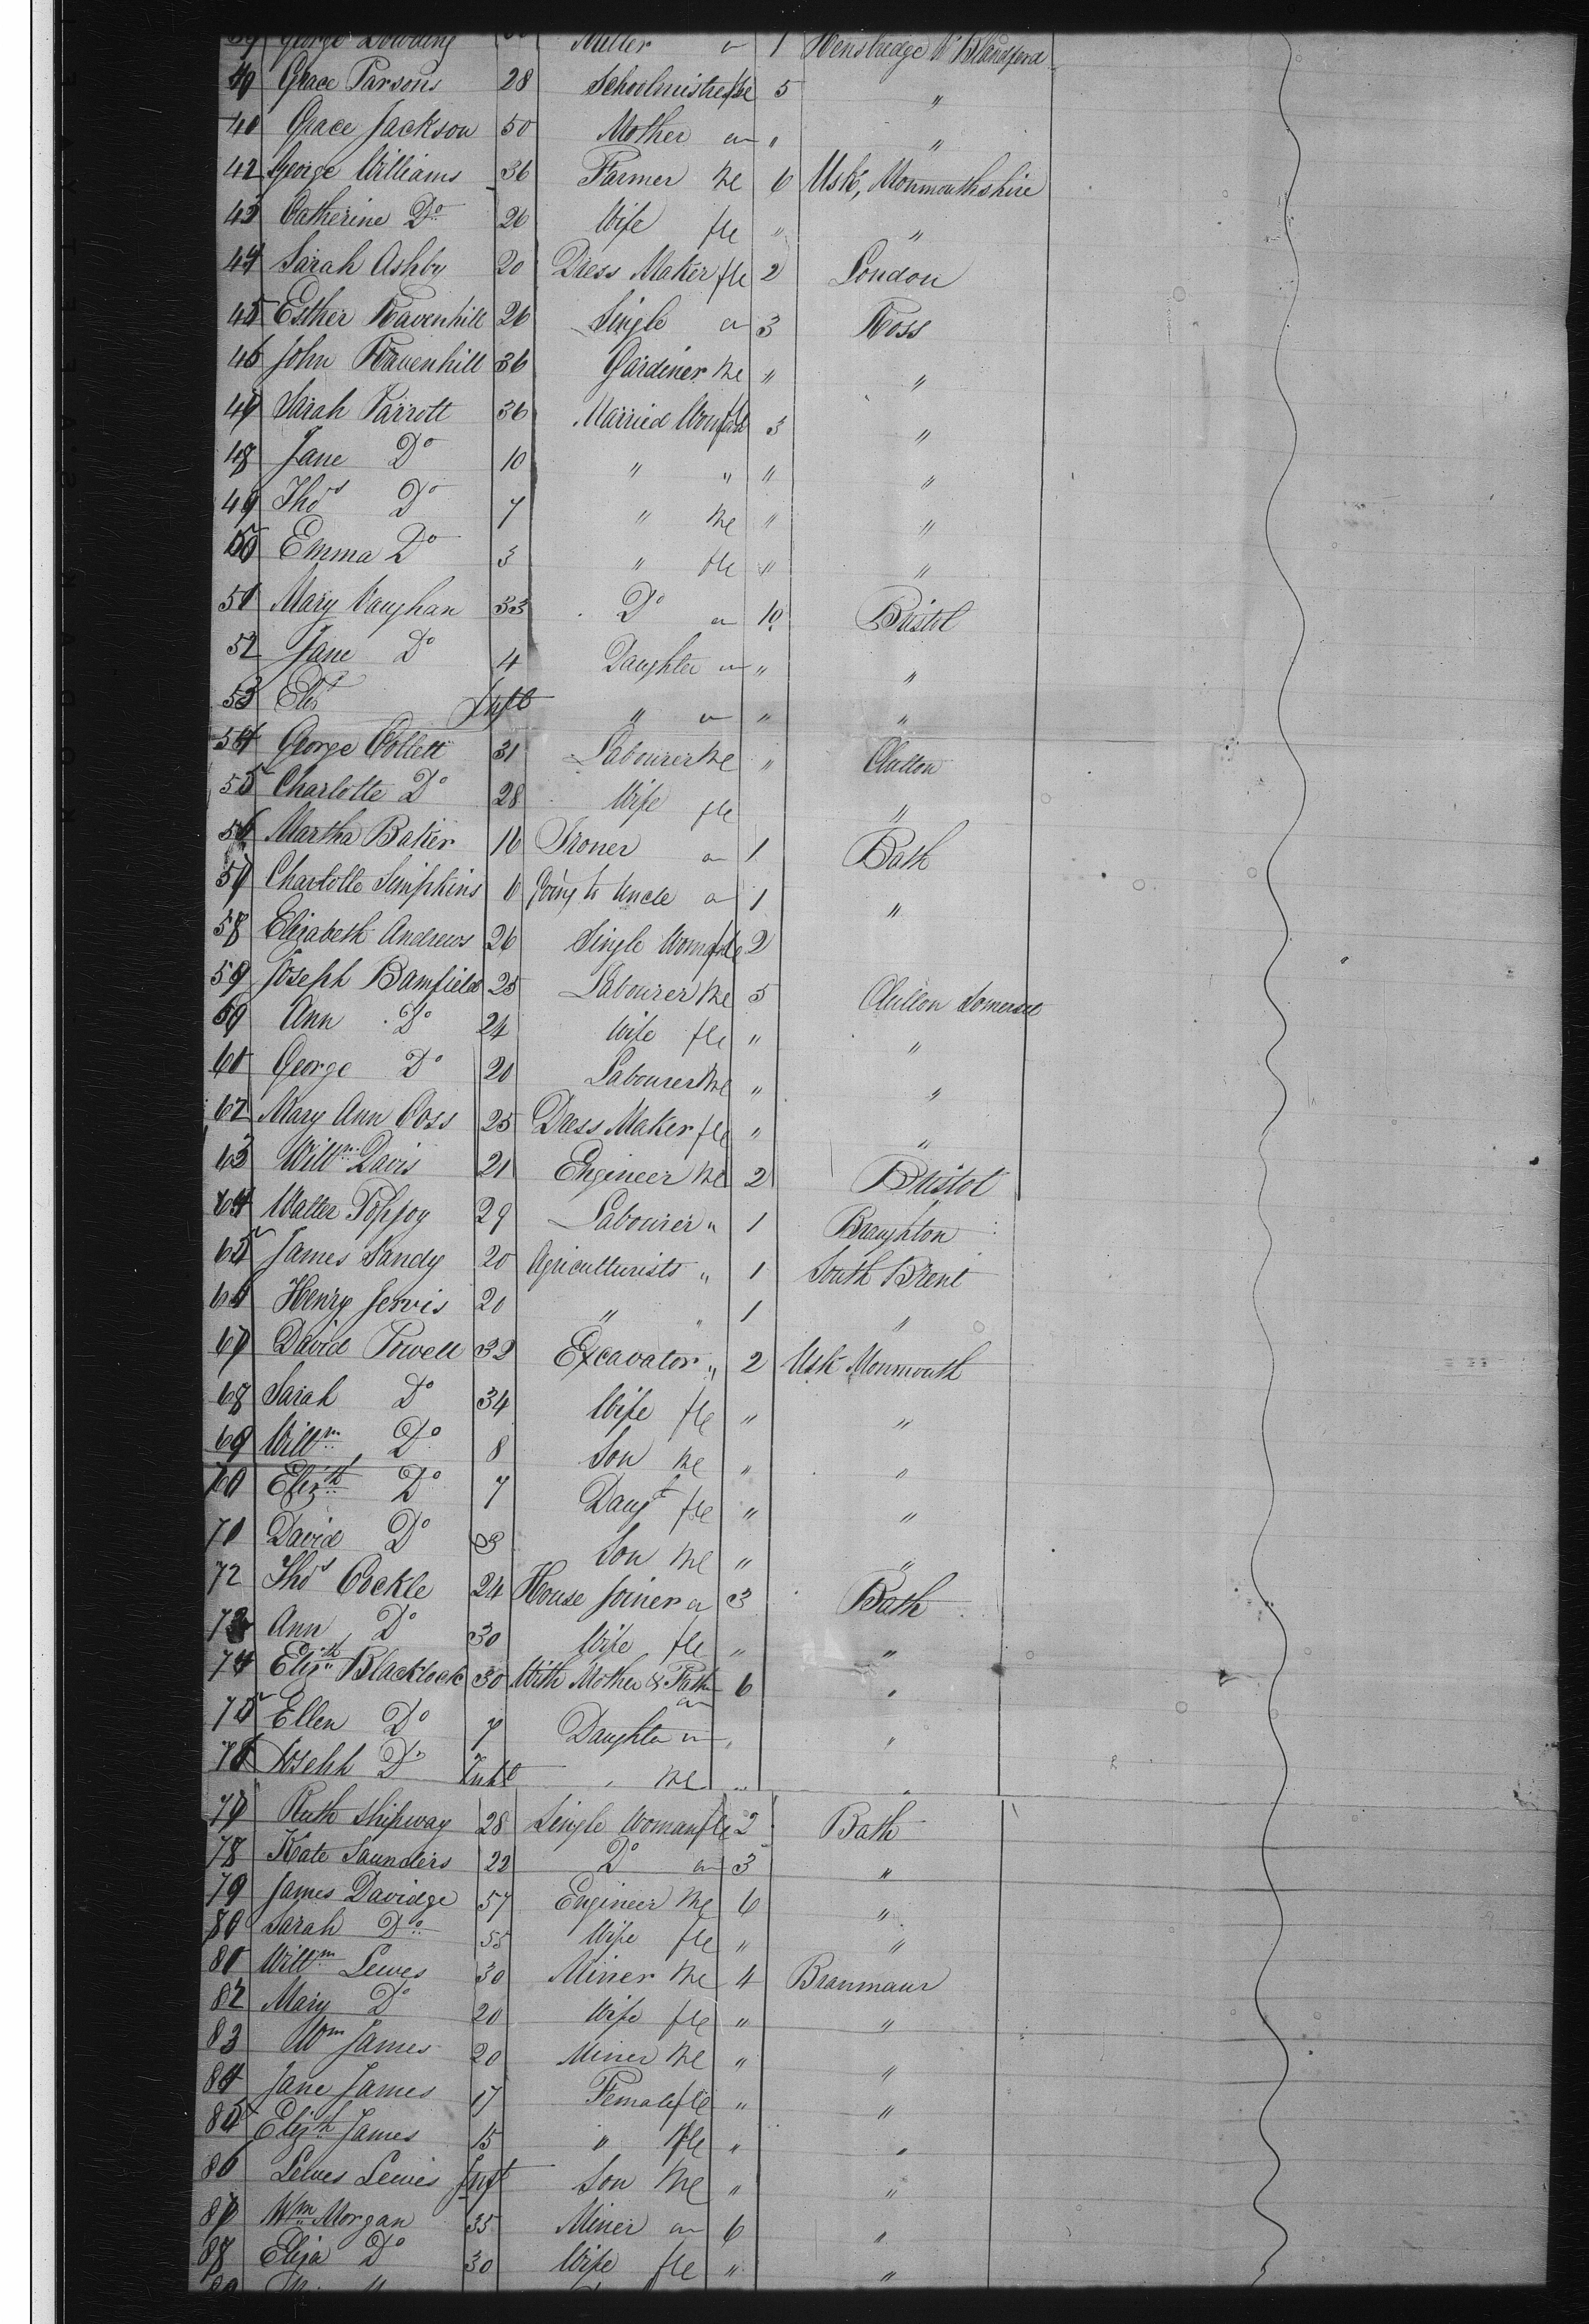 39 George Dowding Miller " 1 Henstredge Nr Blandford
40 Grace Parsons 28 Schoolmistress fle 5 "
41 Grace Jackson 50 Mother " " "
42 George Williams 36 Farmer Me 6 Usk, Monmouthshire
43 Catherine Do 26 Wife fle " "
44 Sarah Ashby 20 Dress Maker fle 2 London
45 Esther Ravenhill 26 Single " 3 Ross
46 John Ravenhill 36 Gardiner Me " "
47 Sarah Parrott 36 Married Woman fle 3 "
48 Jane Do 10 " " " "
49 Thos Do 7 " Me " "
50 Emma Do 3 " fle " "
51 Mary Vaughan 33 Do " 10 Bristol
52 Jane Do 4 Daughter " " "
53 Eliz Inft " " " "
54 George Collett 31 Labourer Me " Clutton
55 Charlotte Do 28 Wife fle "
56 Martha Baker 16 Ironer " 1 Bath
57 Charlotte Simpkins 6 Going to Uncle " 1 "
58 Elizabeth Andrews 26 Single Woman fle 2
59 Joseph Bamfield 25 Labourer Me 5 Clutton Somerset
59 Ann Do 24 Wife fle " "
60 George Do 20 Labourer Me " "
62 Mary Ann Coss 25 Dress Maker fle " "
63 Willm Davis 21 Engineer Me 2 Bristol
64 Walter Popjoy 29 Labourer " 1 Braughton
65 James Sandy 20 Agriculturists " 1 South Brent
66 Henry Jervis 20 " " 1 "
67 David Powell 32 Excavator " 2 Usk Monmouth
68 Sarah Do 34 Wife fle " "
69 Willm Do 8 Son Me " "
70 Elizth Do 7 Daugt fle " "
71 David Do 3 Son Me " "
72 Thos Cockle 24 House Joiner " 3 Bath
73 Ann Do 30 Wife fle " "
74 Elizth Blacklock 30 With Mother & Fath " 6 "
75 Ellen Do 7 Daughter " " "
76 Joseph Do Inft " Me " "
77 Ruth Shipway 28 Single Woman fle 2 Bath
78 Kate Saunders 22 Do " 3 "
79 James Davidge 57 Engineer Me 6 "
80 Sarah Do 55 Wife fle " "
81 Willm Lewes 30 Miner Me 4 Branmaur
82 Mary Do 20 Wife fle " "
83 Wm James 20 Miner Me " "
84 Jane James 17 Female fle " "
85 Elizth James 15 " fle " "
86 Lewes Lewis Inft Son Me " "
87 Wm Morgan 35 Miner " 6 "
88 Eliza Do 30 Wife fle " "